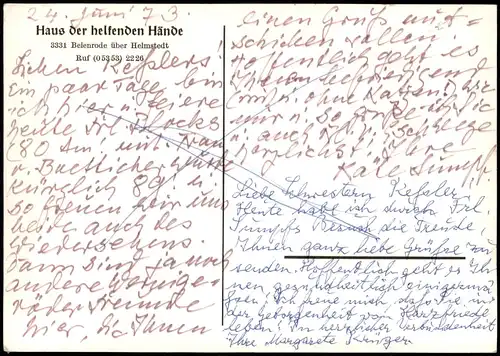 24. Juni 73.
Haus der helfenden Hände
3331 Beienrode über Helmstedt
Ruf (05353) 2226
Lieben Kesslers!
Ein paar Tage bin
ich hier u. feiere
heute Frl. Blocks
(80 Am., mit Frau
v. Boetticher
kürzlich 80) u.
so freuen wir uns
beide auch des
Wiedersehens.
Dann sind ja noch
andere
Freunde
hier, die Ihnen
einen Gruß mit-
schicken wollen.
Hoffentlich geht es
Ihnen befriedigend
u. ohne
nur u. so grüße ich Sie
u. auch
herzlichst Ihre
Käte Sumpf.
Liebe Schwestern Kessler!
Heute habe ich durch Frl.
Sumpfs Besuch die Freude,
Ihnen ganz liebe Grüße zu
senden. Hoffentlich geht es Ih-
nen gesundheitlich einigermas-
sen! Ich freue mich, daß Sie in
der Geborgenheit vom
leben! In herzlicher Verbundenheit
Ihre Margarete Krüger.